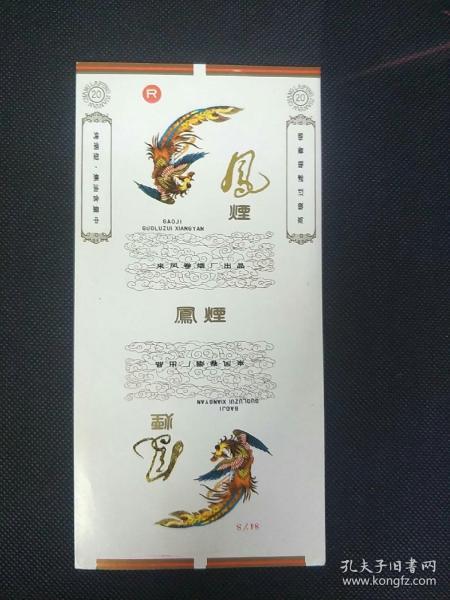 R
20
20
烤烟型·焦油含量中
高级过滤嘴香烟
鳳
煙
GAOJI
GUOLUZUI XIANGYAN
来凤卷烟厂出品
鳳煙
来凤卷烟厂出品
GAOJI
GUOLUZUI XIANGYAN
鳳
煙
孔夫子旧书网
www.kongfz.com